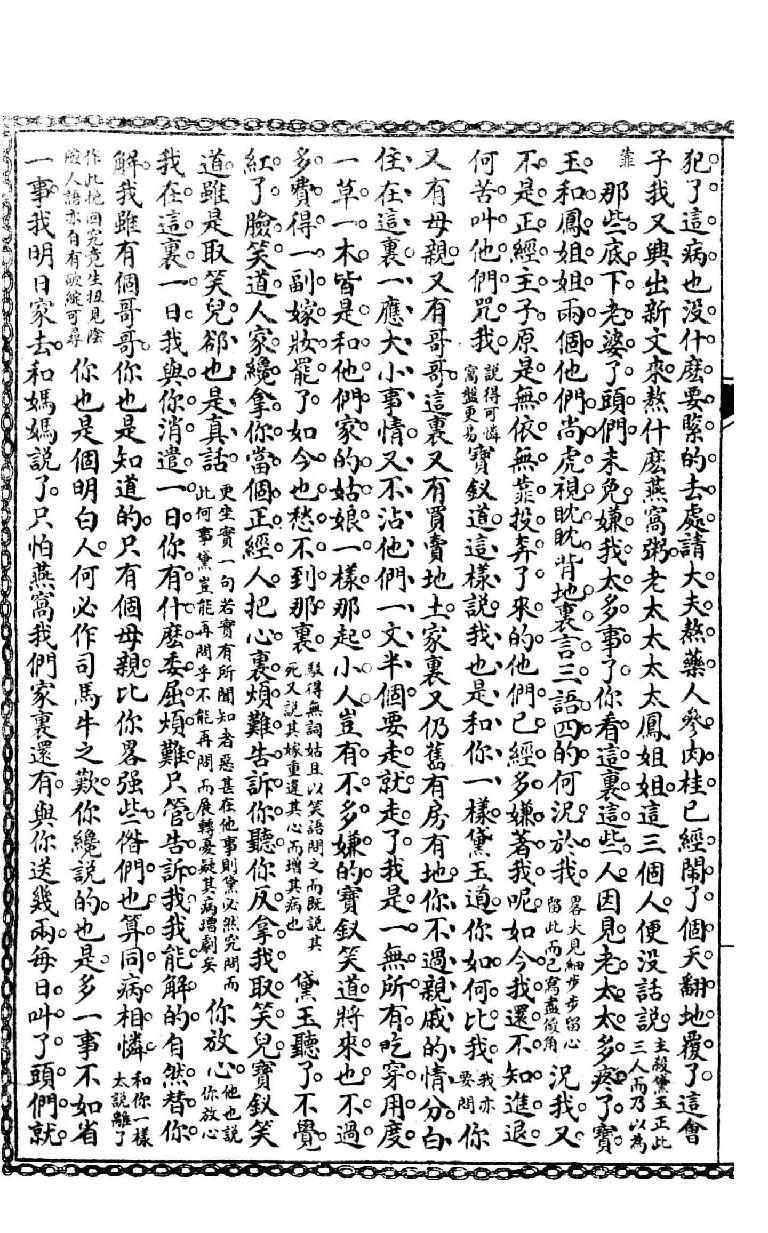 犯了這病也沒什麽要緊的去處請大夫熬藥人參肉桂已經鬧了個天翻地覆了這會
子我又興出新文來熬什麽燕窩粥老太太太太鳳姐姐這三個人便沒話說主殺黛玉正此三人而乃以為靠
那些底下老婆丫頭們未免嫌我太多事了你看這裏這些人因見老太太多疼了寳
玉和鳳姐姐兩個他們尚虎視眈眈背地裏言三語四的何況於我畧大見細步步留心留此而已寫盡微角況我又
不是正經主子原是無依無靠投奔了來的他們已經多嫌著我呢如今我還不知進退
何苦叫他們咒我說得可憐窩盤更易寳釵道這樣說我也是和你一樣黛玉道你如何比我我亦要問你
又有母親又有哥哥這裏又有買賣地土家裏又仍舊有房有地你不過親戚的情分白
住在這裏一應大小事情又不沾他們一文半個要走就走了我是一無所有吃穿用度
一草一木皆是和他們家的姑娘一樣那起小人豈有不多嫌的寳釵笑道將來也不過
多費得一副嫁妝罷了如今也愁不到那裏駁得無詞姑且以笑語問之而既說其死又說其嫁重違其心而增其病也黛玉聽了不覺
紅了臉笑道人家纔拿你當個正經人把心裏煩難告訴你聽你反拿我取笑兒寳釵笑
道雖是取笑兒卻也是真話更坐實一句若實有所聞知者惡甚在他事則黛必然究問而此何事黛豈能再問乎不能再問而展轉憂疑其病增劇矣你放心他也說你放心
我在這裏一日我與你消遣一日你有什麽委屈煩難只管告訴我我能解的自然替你
解我雖有個哥哥你也是知道的只有個母親比你畧强些偺們也算同病相憐和你一樣太說離了
作此挽回究竟生扭見陰險人語亦自有破綻可尋你也是個明白人何必作司馬牛之歎你纔說的也是多一事不如省
一事我明日家去和媽媽說了只怕燕窩我們家裏還有與你送幾兩每日叫丫頭們就